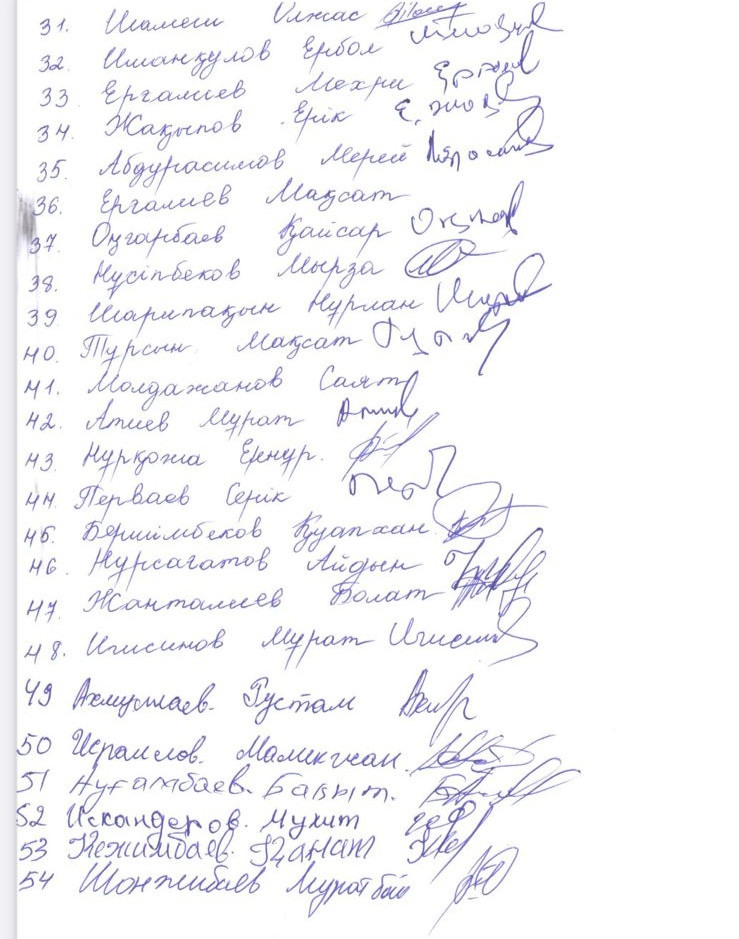 31. Шамеш Олжас
32. Иманқулов Ербол
33 Ергалиев Мехри
34. Жақыпов Ерік Е. Жақ
35. Абдурасимов Мерей
36. Ергалиев Мақсат
37. Оңгарбаев Қайсар
38. Нүсіпбеков Мырза
39 Шарипақын Нурлан
40. Турсын Мақсат
41. Молдажанов Саят
42. Атиев Мурат
43. Нурқожа Еркнур.
44. Перваев Серік
45. Бершімбеков Қуапхан
46. Нурсагатов Айдын
47. Жанталиев Болат
48. Игисинов Мурат Игисин
49 Ахмушаев. Рустам
50 Исраилов. Маликжан.
51 Нуғамбаев. Бакыт.
52 Искандеров. Мухит
53 Кежимбаев. Қанат
54 Шонжибаев Муратбай